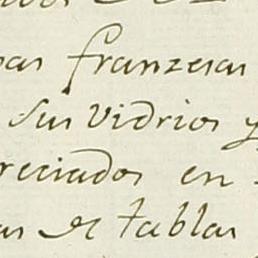 franzesas
sus vidrios y
reciados en
de tablas